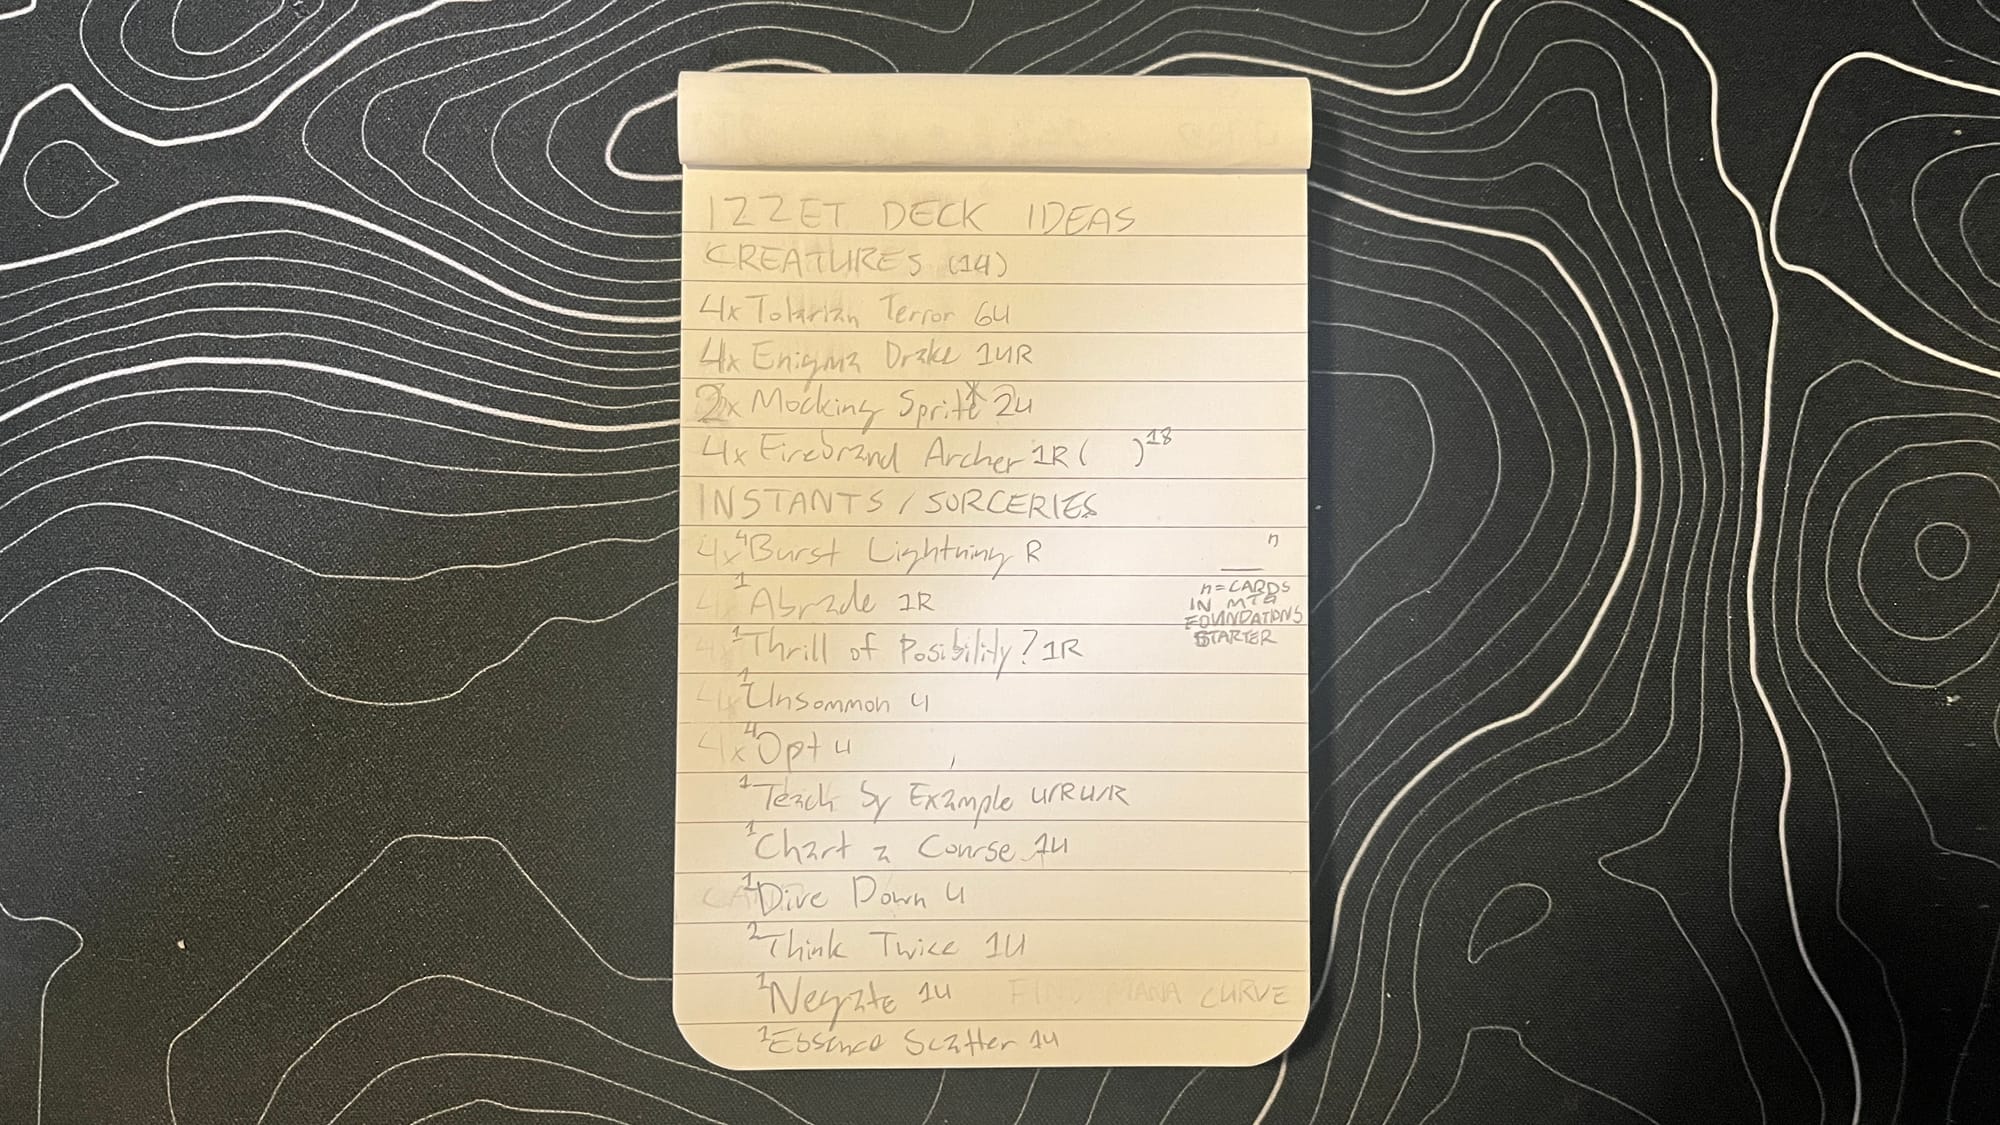 IZZET DECK IDEAS
CREATURES (14)
4x Tolarian Terror 6U
4x Enigma Drake 1UR
2x Mocking Sprite 2U
4x Firebrand Archer 1R ( )18
INSTANTS / SORCERIES
4x 4 Burst Lightning R
n
1 Abrade 1R
n = CARDS
IN MTG
FOUNDATIONS
STARTER
1 Thrill of Posibility? 1R
1 Unsommon U
4x 4 Opt U
1 Teach by Example U/R U/R
1 Chart a Course 1U
1 Dive Down U
2 Think Twice 1U
1 Negate 1U
MANA CURVE
1 Essence Scatter 1U